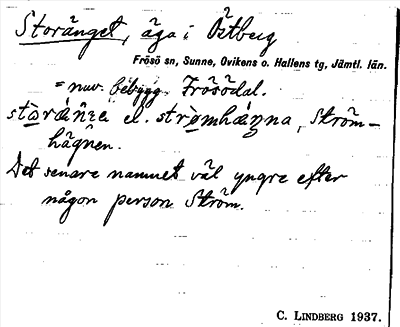 Storänget, äga i Östberg
Frösö sn, Sunne, Ovikens o. Hallens tg, Jämtl. län.
= nuv. bebygg. Frösödal.
el. strømhæŋna, Ström-
hägnen.
Det senare namnet väl yngre efter
någon person Ström.
C. LINDBERG 1937.